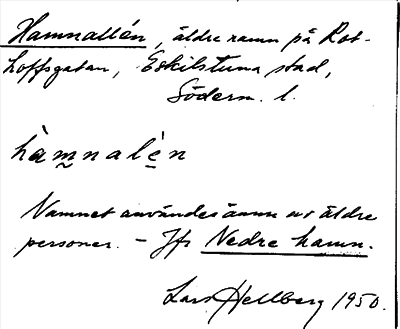 Hamnallén, äldre namn på Rot-
hoffsgatan, Eskilstuna stad,
Söderm. l.
hàmnalén
Namnet användes ännu av äldre
personer. – Jfr Nedre hamn.
Lars Hellberg 1950.